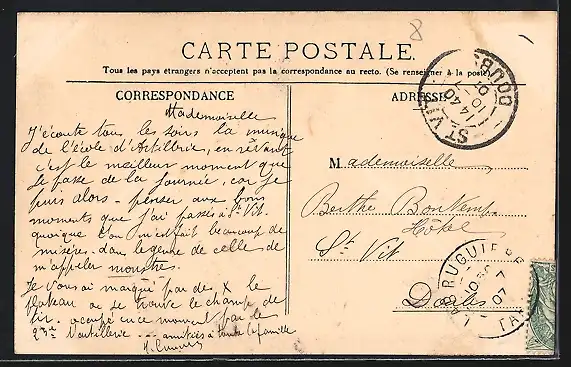 8
CARTE POSTALE
Tous les pays étrangers n'acceptent pas la correspondance au recto. (Se renseigner à la poste)
CORRESPONDANCE
Mademoiselle
J'écoute tous les soirs la musique
de l'école d'Artillerie, en rêvant
c'est le meilleur moment que
je passe de la journée, car je
puis alors penser aux bons
moments que j'ai passés à St Vit.
quoique l'on m'est fait beaucoup de
misères. dans le genre de celle de
m'appeler monstre.
Je vous ai marqué par des X le
plateau où se trouve le champ de
tir. occupé en ce moment par le
23me d'artillerie amitiés à toute la famille
ADRESSE
Mademoiselle
Berthe Bontemps
Hôtel
St Vit
Doubs
ST VIT
DOUBS
14 40
10
07
LABRUGUIERE
TARN
07